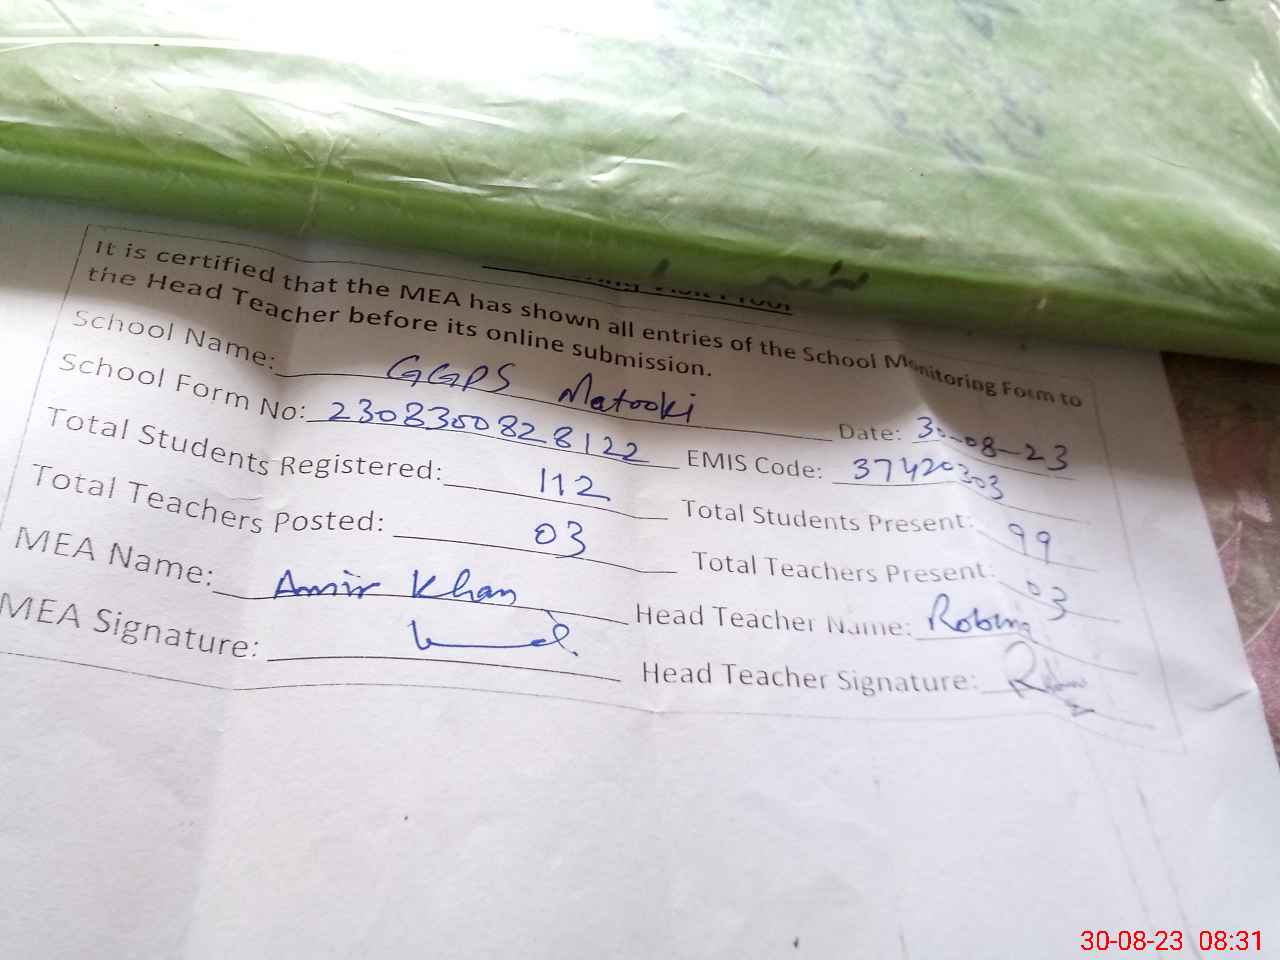 It is certified that the MEA has shown all entries of the School Monitoring Form to
the Head Teacher before its online submission.
School Name: GGPS Matooki Date: 30-08-23
School Form No: 2308300828122 EMIS Code: 37420303
Total Students Registered: 112 Total Students Present: 99
Total Teachers Posted: 03 Total Teachers Present: 03
MEA Name: Amir Khan Head Teacher Name: Robina
MEA Signature: Head Teacher Signature:
30-08-23 08:31